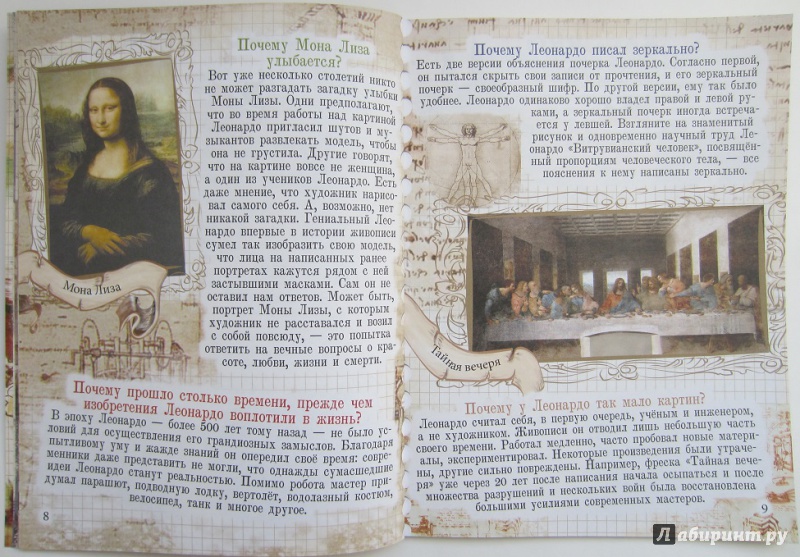 Почему Мона Лиза
улыбается?
Вот уже несколько столетий никто
не может разгадать загадку улыбки
Моны Лизы. Одни предполагают,
что во время работы над картиной
Леонардо пригласил шутов и му-
зыкантов развлекать модель, чтобы
она не грустила. Другие говорят,
что на картине вовсе не женщина,
а один из учеников Леонардо. Есть
даже мнение, что художник нарисо-
вал самого себя. А, возможно, нет
никакой загадки. Гениальный Лео-
нардо впервые в истории живописи
сумел так изобразить свою модель,
что лица на написанных ранее
портретах кажутся рядом с ней
застывшими масками. Сам он не
оставил нам ответов. Может быть,
портрет Моны Лизы, с которым
художник не расставался и возил
с собой повсюду, — это попытка
ответить на вечные вопросы о кра-
соте, любви, жизни и смерти.
Мона Лиза
Почему прошло столько времени, прежде чем
изобретения Леонардо воплотили в жизнь?
В эпоху Леонардо — более 500 лет тому назад — не было ус-
ловий для осуществления его грандиозных замыслов. Благодаря
пытливому уму и жажде знаний он опередил своё время: совре-
менники даже представить не могли, что однажды сумасшедшие
идеи Леонардо станут реальностью. Помимо робота мастер при-
думал парашют, подводную лодку, вертолёт, водолазный костюм,
велосипед, танк и многое другое.
8
Почему Леонардо писал зеркально?
Есть две версии объяснения почерка Леонардо. Согласно первой,
он пытался скрыть свои записи от прочтения, и его зеркальный
почерк — своеобразный шифр. По другой версии, ему так было
удобнее. Леонардо одинаково хорошо владел правой и левой ру-
ками, а зеркальный почерк иногда встреча-
ется у левшей. Взгляните на знаменитый
рисунок и одновременно научный труд Ле-
онардо «Витрувианский человек», посвящён-
ный пропорциям человеческого тела, — все
пояснения к нему написаны зеркально.
Тайная вечеря
Почему у Леонардо так мало картин?
Леонардо считал себя, в первую очередь, учёным и инженером,
а не художником. Живописи он отводил лишь небольшую часть
своего времени. Работал медленно, часто пробовал новые матери-
алы, экспериментировал. Некоторые произведения были утраче-
ны, другие сильно повреждены. Например, фреска "Тайная вече-
ря" уже через 20 лет после написания начала осыпаться и после
множества разрушений и нескольких войн была восстановлена
большими усилиями современных мастеров.
9
Лабиринт.ру